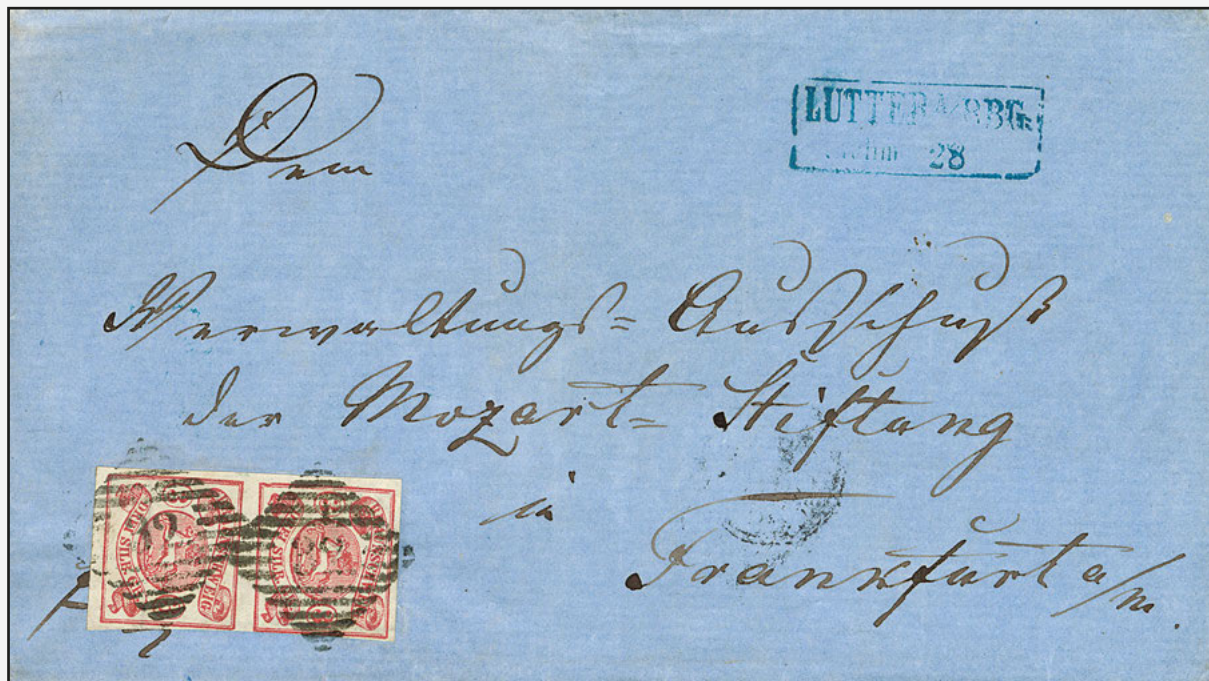 LUTTER A/BBG.
28
Dem
Verwaltungs= Ausschuß
der Mozart= Stiftung
in
Frankfurt a/m.